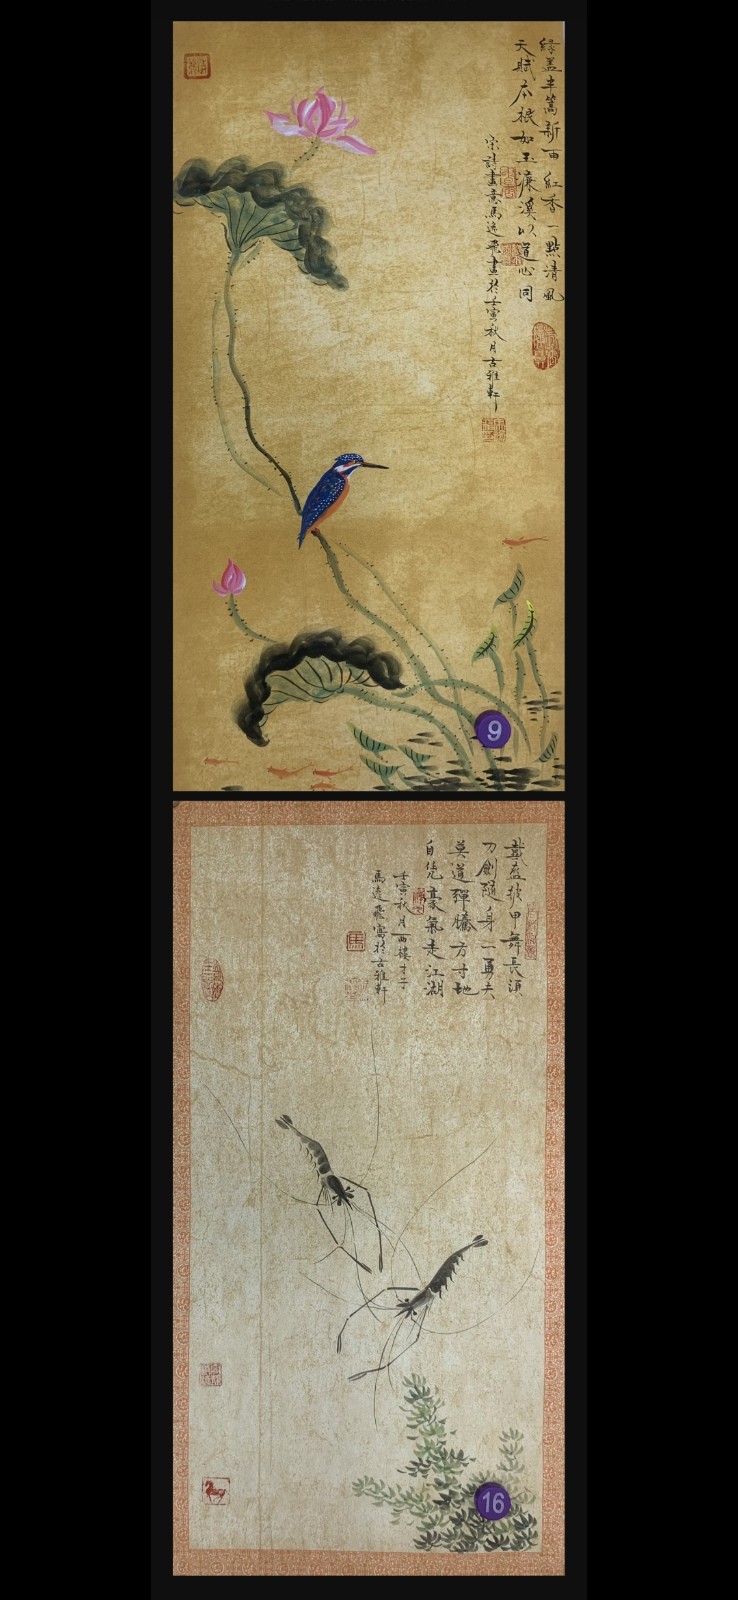 緑盖半篙新雨紅香一點清風
天賦本根如玉濂溪以道心同
宋詩畫意馬遠飛畫於壬寅秋月古雅軒
9
戴盔披甲舞長須
刀劍隨身一勇夫
莫道彈騰方寸地
自凭豪氣走江湖
壬寅秋月西樓才子
馬遠飛寫於古雅軒
16